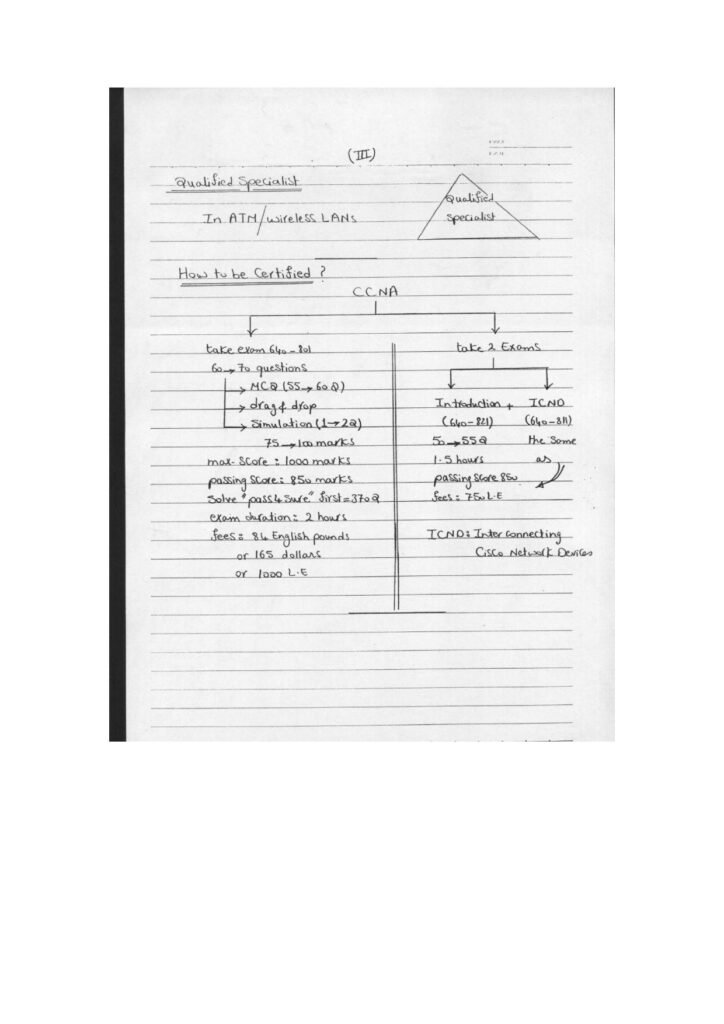 (III)
Qualified Specialist
In ATM/wireless LANs
Qualified
Specialist
How to be Certified ?
CCNA
take exam 640-801
60→70 questions
→ MCQ (55→60Q)
→ drag & drop
→ Simulation (1→2Q)
75→100 marks
max. Score : 1000 marks
passing Score: 850 marks
Solve "pass4sure" first = 370Q
exam duration: 2 hours
fees: 84 English pounds
or 165 dollars
or 1000 L.E
take 2 Exams
Introduction + ICND
(640-821) (640-811)
50→55Q the same
1.5 hours as
passing score 850
fees: 750 L.E
ICND: Inter connecting
Cisco Network Devices